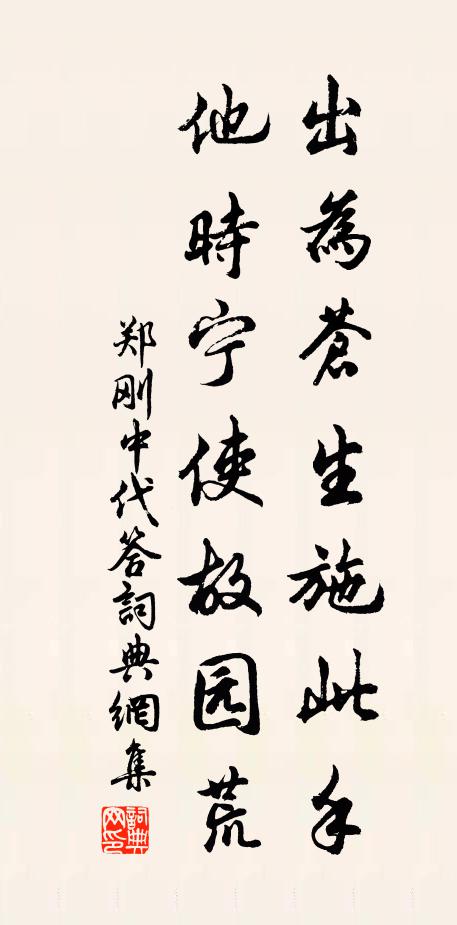 出為蒼生施此手
他時宁使故园荒
郑刚中代答詞典網集
詞典网印